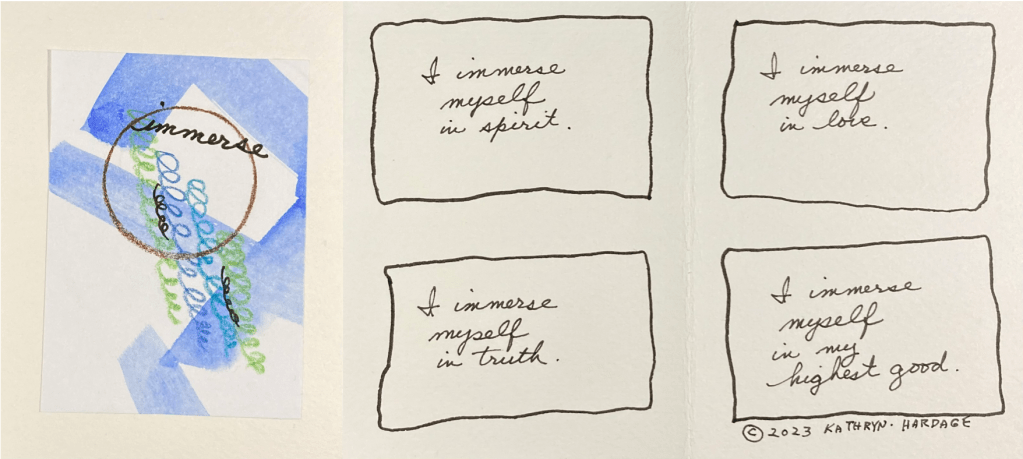 immerse
I immerse
myself
in spirit.
I immerse
myself
in love.
I immerse
myself
in truth.
I immerse
myself
in my
highest good.
© 2023 KATHRYN · HARDAGE